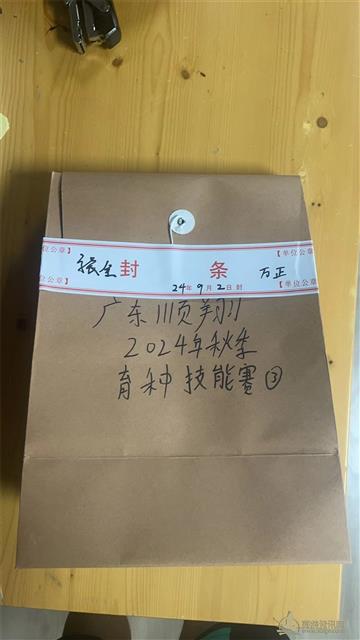 位公章】
【单位公章
张全 封 条 万正
位公章】
24年9月2日封
【单位公章
广东顺翔
2024年秋季
育种技能赛③